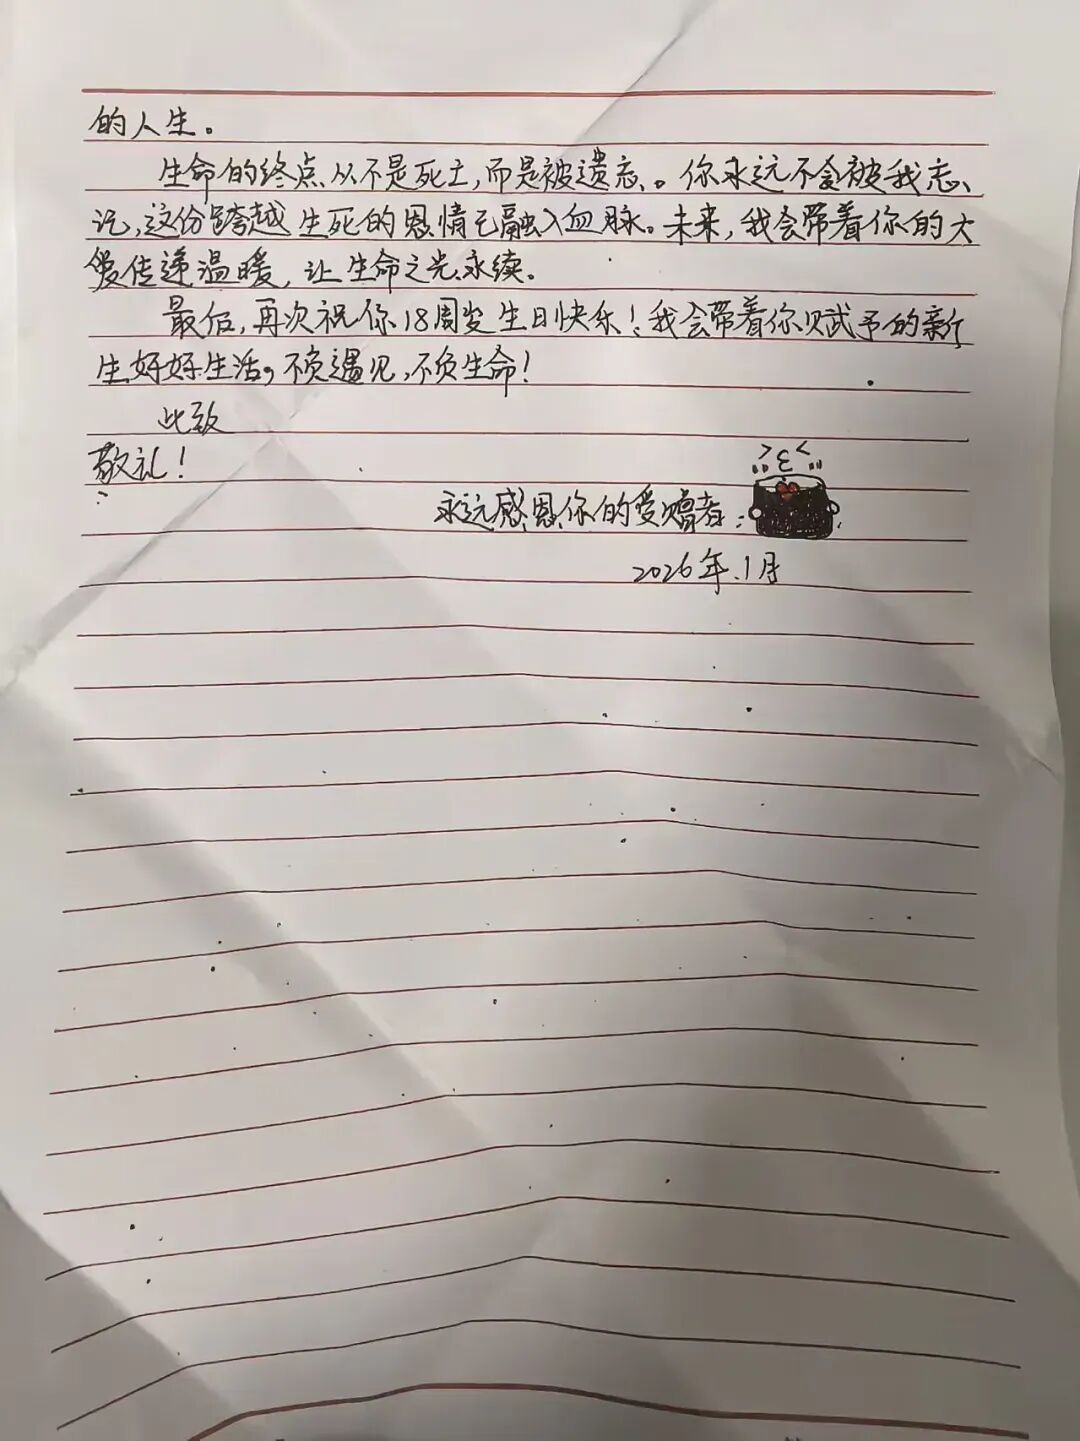 的人生。
生命的终点从不是死亡,而是被遗忘。你永远不会被我忘
记,这份跨越生死的恩情已融入血脉。未来,我会带着你的大
爱传递温暖,让生命之光永续。
最后,再次祝你18周岁生日快乐!我会带着你赋予的新
生好好生活,不负遇见,不负生命!
此致
敬礼!
永远感恩你的受赠者:
2026年1月